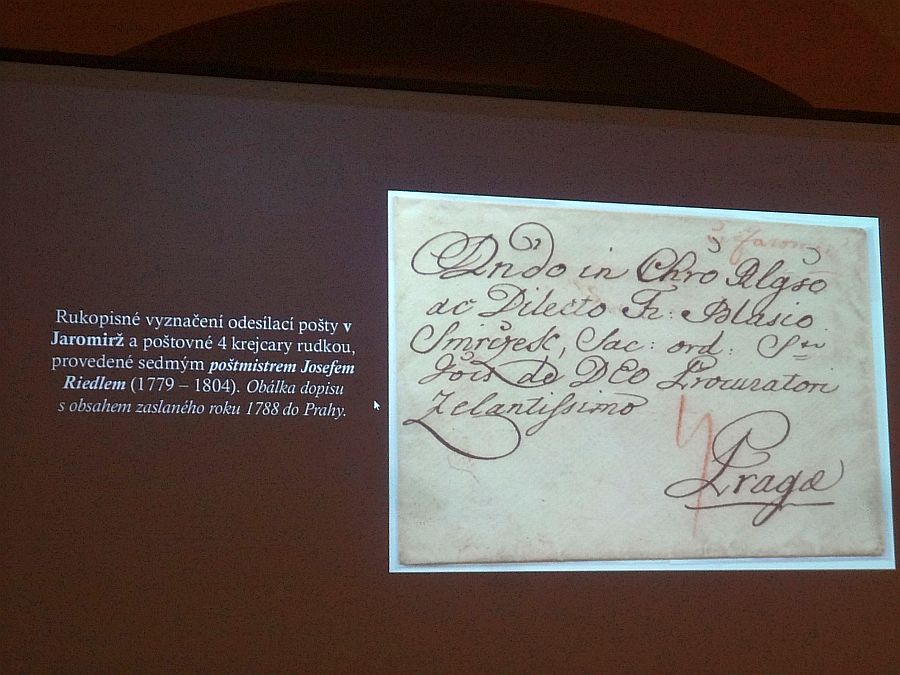 Rukopisné vyznačení odesílací pošty v
Jaromirž a poštovné 4 krejcary rudkou,
provedené sedmým poštmistrem Josefem
Riedlem (1779 – 1804). Obálka dopisu
s obsahem zaslaného roku 1788 do Prahy.
Dndo in Chro Rlgso
ac Dilecto Fr: Blasio
Smirzesk, Sac: ord: Sti
Jois de DEO Procuratori
Zelantissimo
4
Pragæ